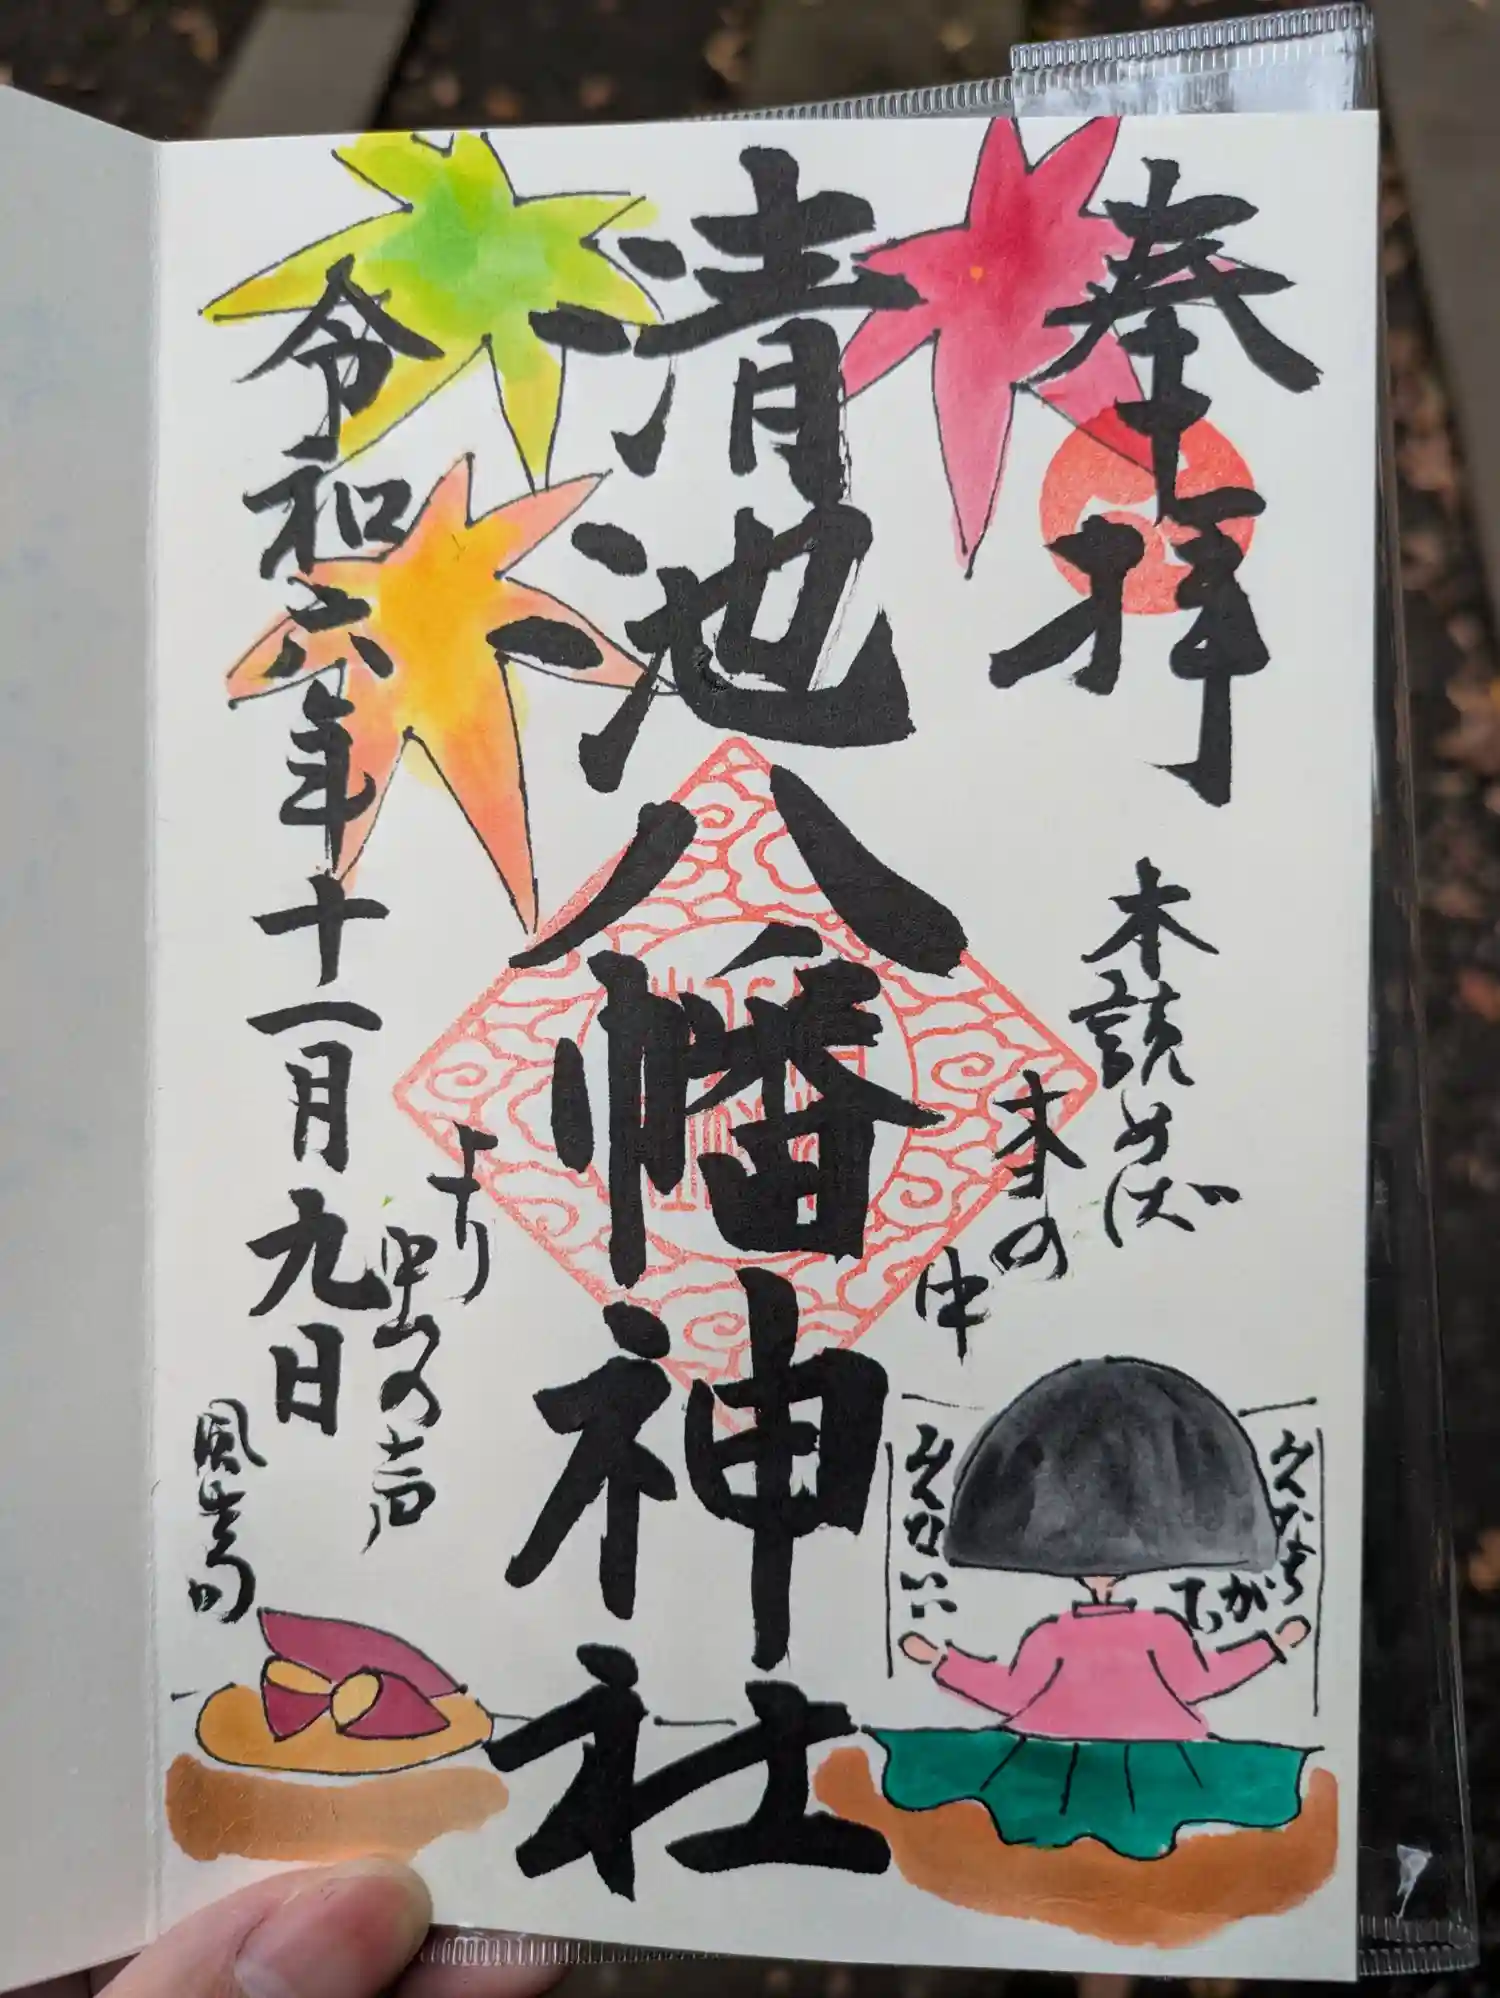 奉拝
本読めば
本の
中
より
虫の声
風生句
清池八幡神社
令和六年十一月九日